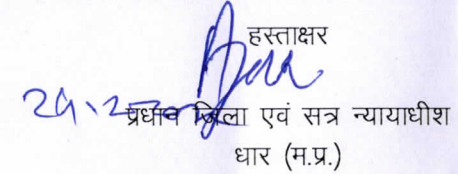 हस्ताक्षर
प्रधान जिला एवं सत्र न्यायाधीश
धार (म.प्र.)